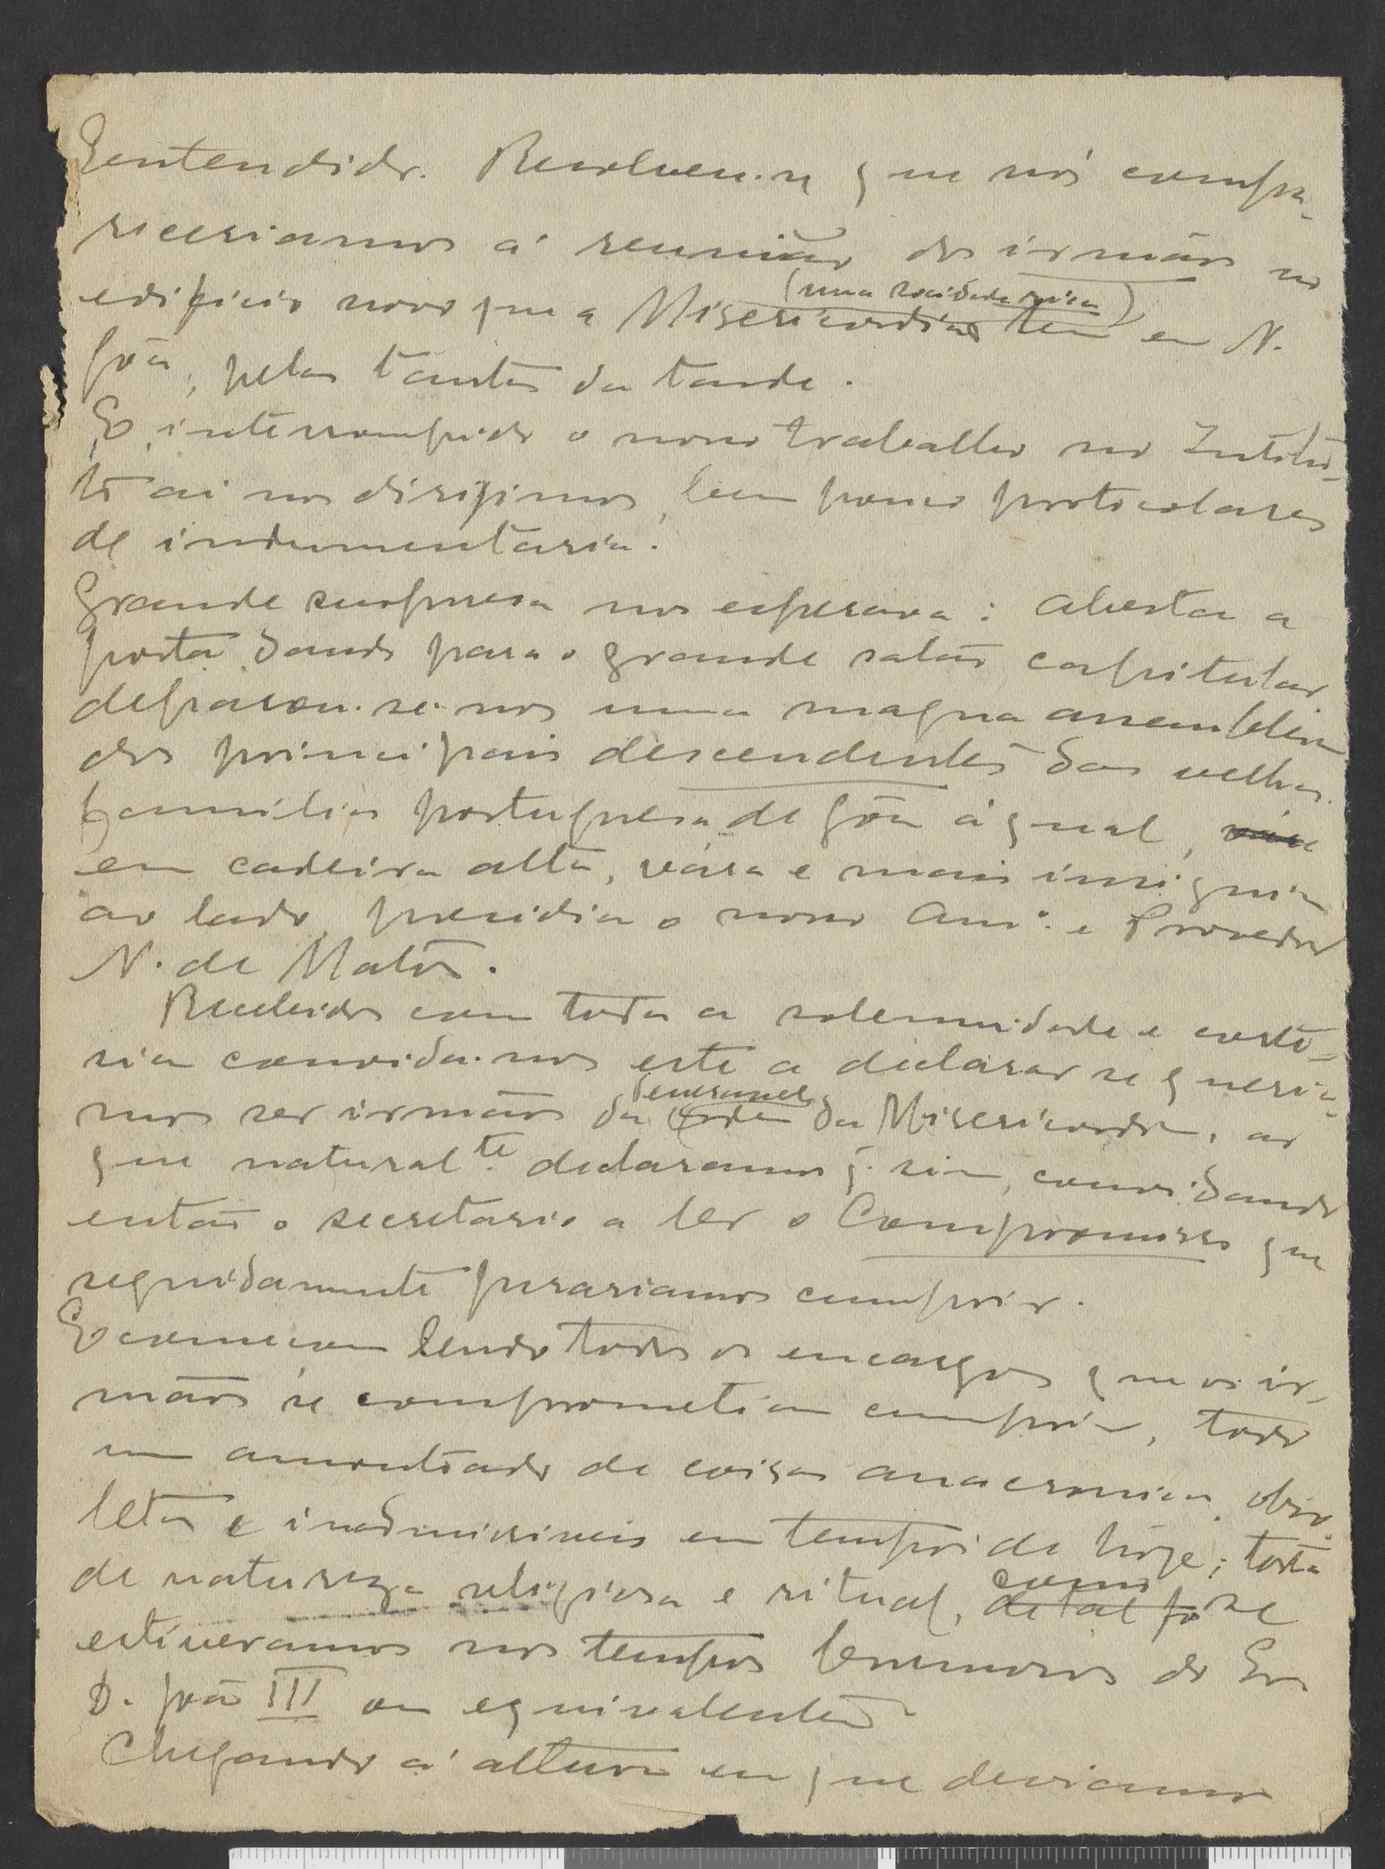 Entendido. Resolveu-se que nós compa-
receriamos á reunião dos irmãos no
edificio novo que a Misericordia (uma sociedade rica) tem em N.
Gôa, pelas tantas da tarde.
E, interrompido o nosso trabalho no Institu-
to aí nos dirigimos, bem pouco protocolares
de indumentaria.
Grande surpresa nos esperava: aberta a
porta dando para o grande salão capitular
deparou-se-nos uma magna assembleia
dos principais descendentes das velhas
familias portuguesas de Gôa á qual,
em cadeira alta, vára e mais insignia
ao lado, presidia o nosso amº. e Provedor
N. de Matos.
Recebidos com toda a solemnidade e corte-
sia convida-nos este a declarar se queria-
mos ser irmãos da veneranda Ordem da Misericordia, ao
que naturalte. declaramos q. sim, convidando
então o secretario a ler o Compromisso que
seguidamente jurariamos cumprir.
E começou lendo todos os encargos que os ir-
mãos se comprometiam cumprir, todo
um amontoado de coisas anacronicas, obso-
letas e inadmissiveis em tempos de hoje; todas
de natureza religiosa e ritual, como de tal fo se
estiveramos nos tempos do
D. João III ou equivalentes.
Chegando á altura em que deviamos